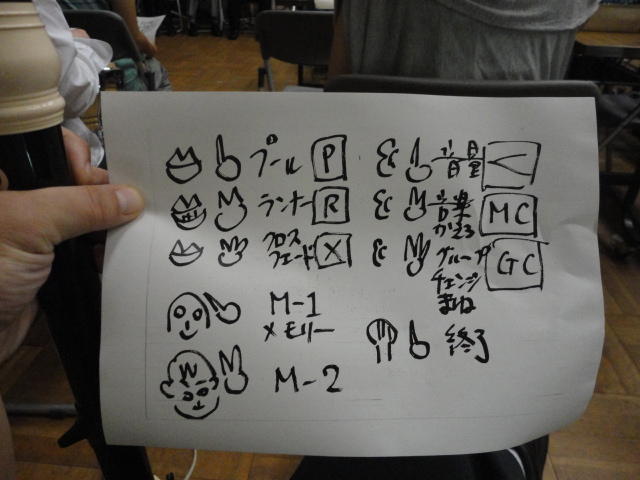 プール P
音量 <
ランナー R
音楽かえる MC
クロスフェード X
グループチェンジまね GC
M-1
メモリー
終了
M-2